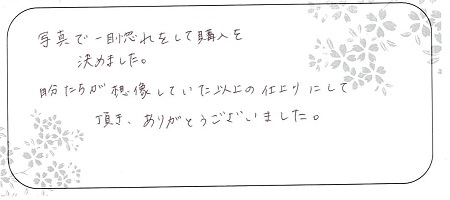 写真で一目惚れをして購入を
決めました。
自分たちが想像していた以上の仕上りにして
頂き、ありがとうございました。